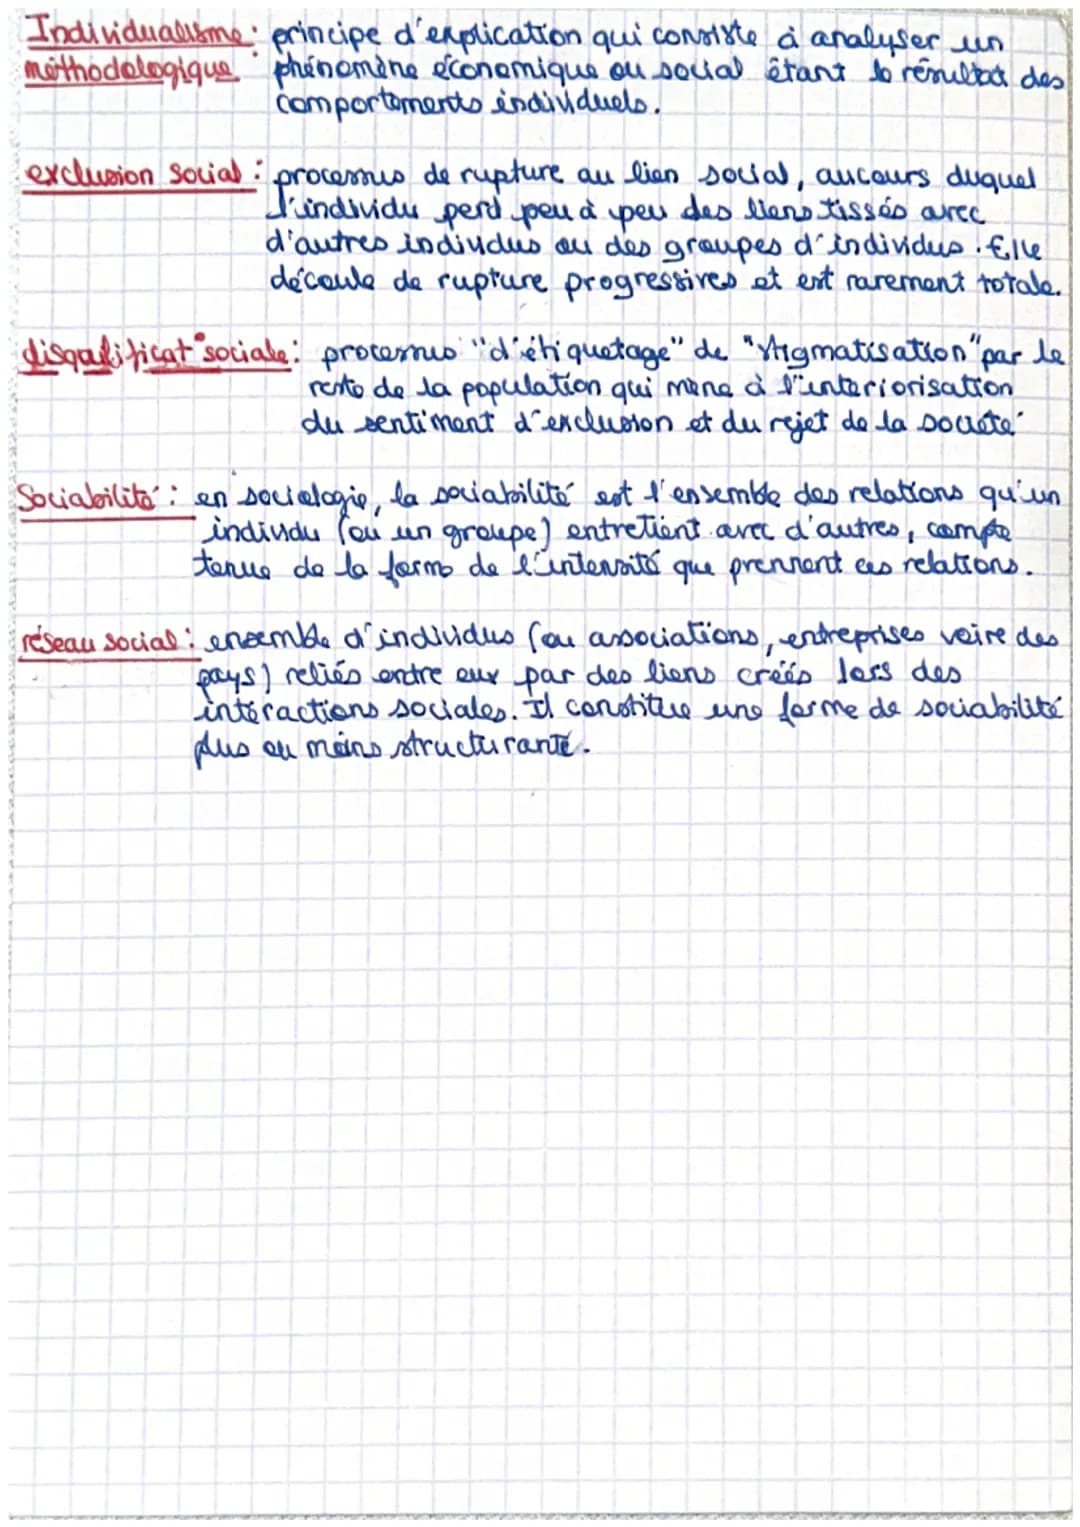 Individualisme : principe d'explication qui consiste à analyser un
méthodologique phénomène économique ou social étant le résultat des
comportements individuels.
exclusion social : processus de rupture au lien social, aucours duquel
l'individu perd peu à peu des liens tissés avec
d'autres individus ou des groupes d'individus. Elle
découle de rupture progressives et est rarement totale.
disqualificat° sociale : processus "d'étiquetage" de "stigmatisation" par le
reste de la population qui mène à l'interiorisation
du sentiment d'exclusion et du rejet de la société
Sociabilité : en sociologie, la sociabilité est l'ensemble des relations qu'un
individu (ou un groupe) entretient avec d'autres, compte
tenue de la forme de l'intensité que prennent ces relations.
réseau social : ensemble d'individus (ou associations, entreprises voire des
pays) reliés entre eux par des liens créés lors des
interactions sociales. Il constitue une forme de sociabilité
plus ou moins structurante.